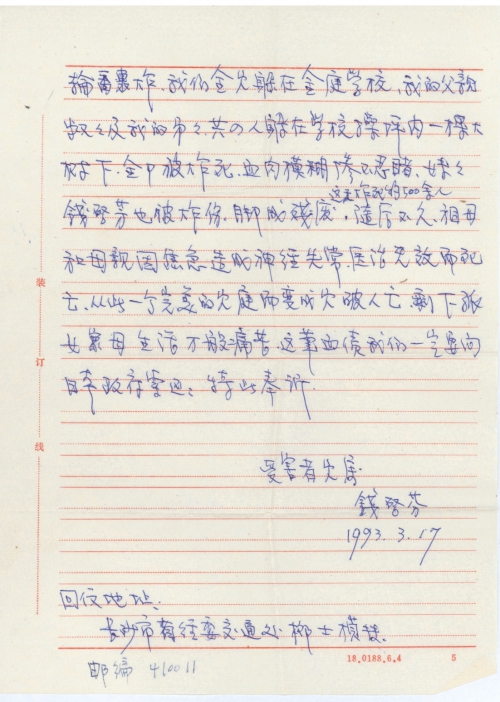 輪番轟炸，我们全家躲在金庭学校，我的父親
叔叔及我的弟弟共8人躲在学校操坪内一棵大
树下，全部被炸死，血肉模糊惨不忍睹，妹妹
这天炸死约500余人
錢啓芬也被炸傷，脚成殘廢，随后不久，祖母
和母親因焦急造成神经失常医治无效而死
亡，从此一个完美的家庭而变成家破人亡，剩下孤
女寡母生活万般痛苦，这筆血债我们一定要向
日本政府索还，特此奉訴。
受害者家属
1993.3.17
回信地址：
长沙市
交通处
邮编 410011
装
订
线
18.0188.6.4
5